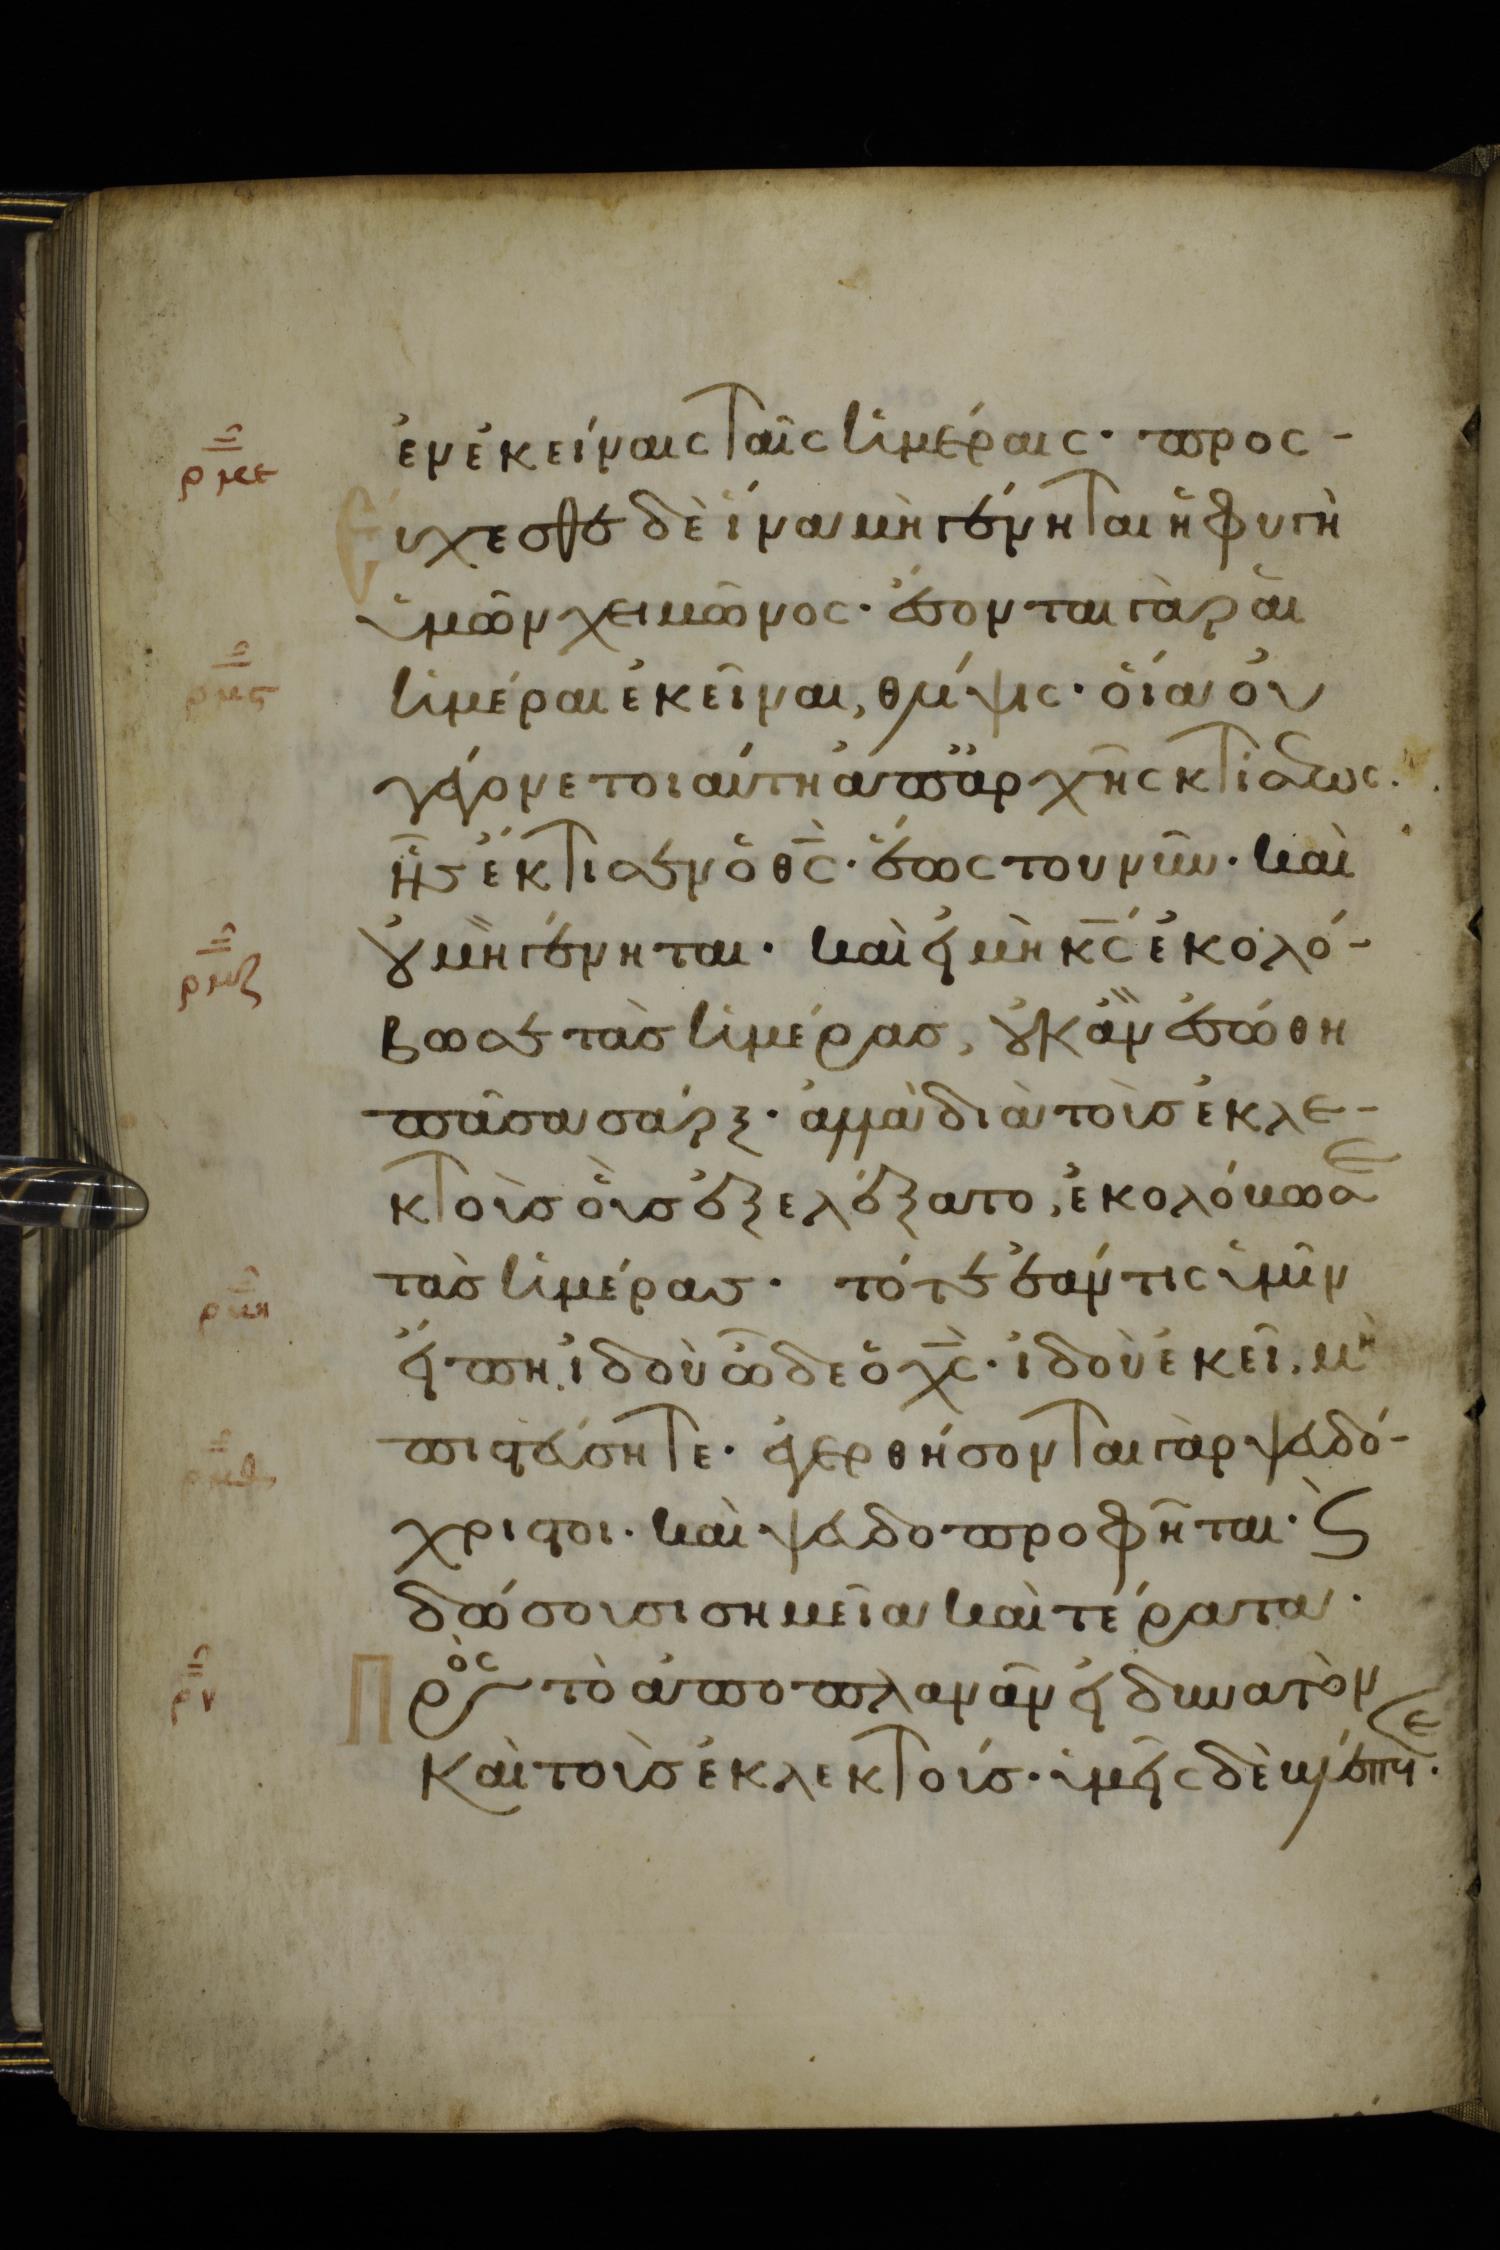 ρμε
ἐν ἐκείναις ταῖς ἡμέραις· προς-
εύχεσθε δὲ ἵνα μὴ γένηται ἡ φυγὴ
ὑμῶν χειμῶνος· ἔσονται γὰρ αἱ
ρμς
ἡμέραι ἐκεῖναι, θλίψις· οἵα οὐ
γέγονε τοιαύτη ἀπ' ἀρχῆς κτίσεως.
ἧς ἔκτισεν ὁ θ̅ς̅· ἕως του νῦν· καὶ
ρμζ
οὐ μὴ γένηται· καὶ εἰ μὴ κ̅ς̅ ἐκολό-
βωσε τὰς ἡμέρας, οὐκ ἂν ἐσώθη
πᾶσα σάρξ· ἀλλὰ διὰ τοὺς ἐκλε-
κτοὺς οὓς ἐξελέξατο, ἐκολόβωσε
ρμη
τὰς ἡμέρας· τότε ἐάν τις ὑμῖν
εἴπη, ἰδοὺ ὧδε ὁ χ̅ς̅· ἰδοὺ ἐκεῖ, μὴ
ρμθ
πιστεύσητε· ἐγερθήσονται γὰρ ψευδό-
χριστοι· καὶ ψευδοπροφῆται· ϛ
δώσουσι σημεῖα καὶ τέρατα·
ρν
Πρὸς τὸ ἀποπλανᾶν εἰ δυνατὸν
καὶ τοὺς ἐκλεκτούς· ὑμεῖς δὲ βλέπετε·